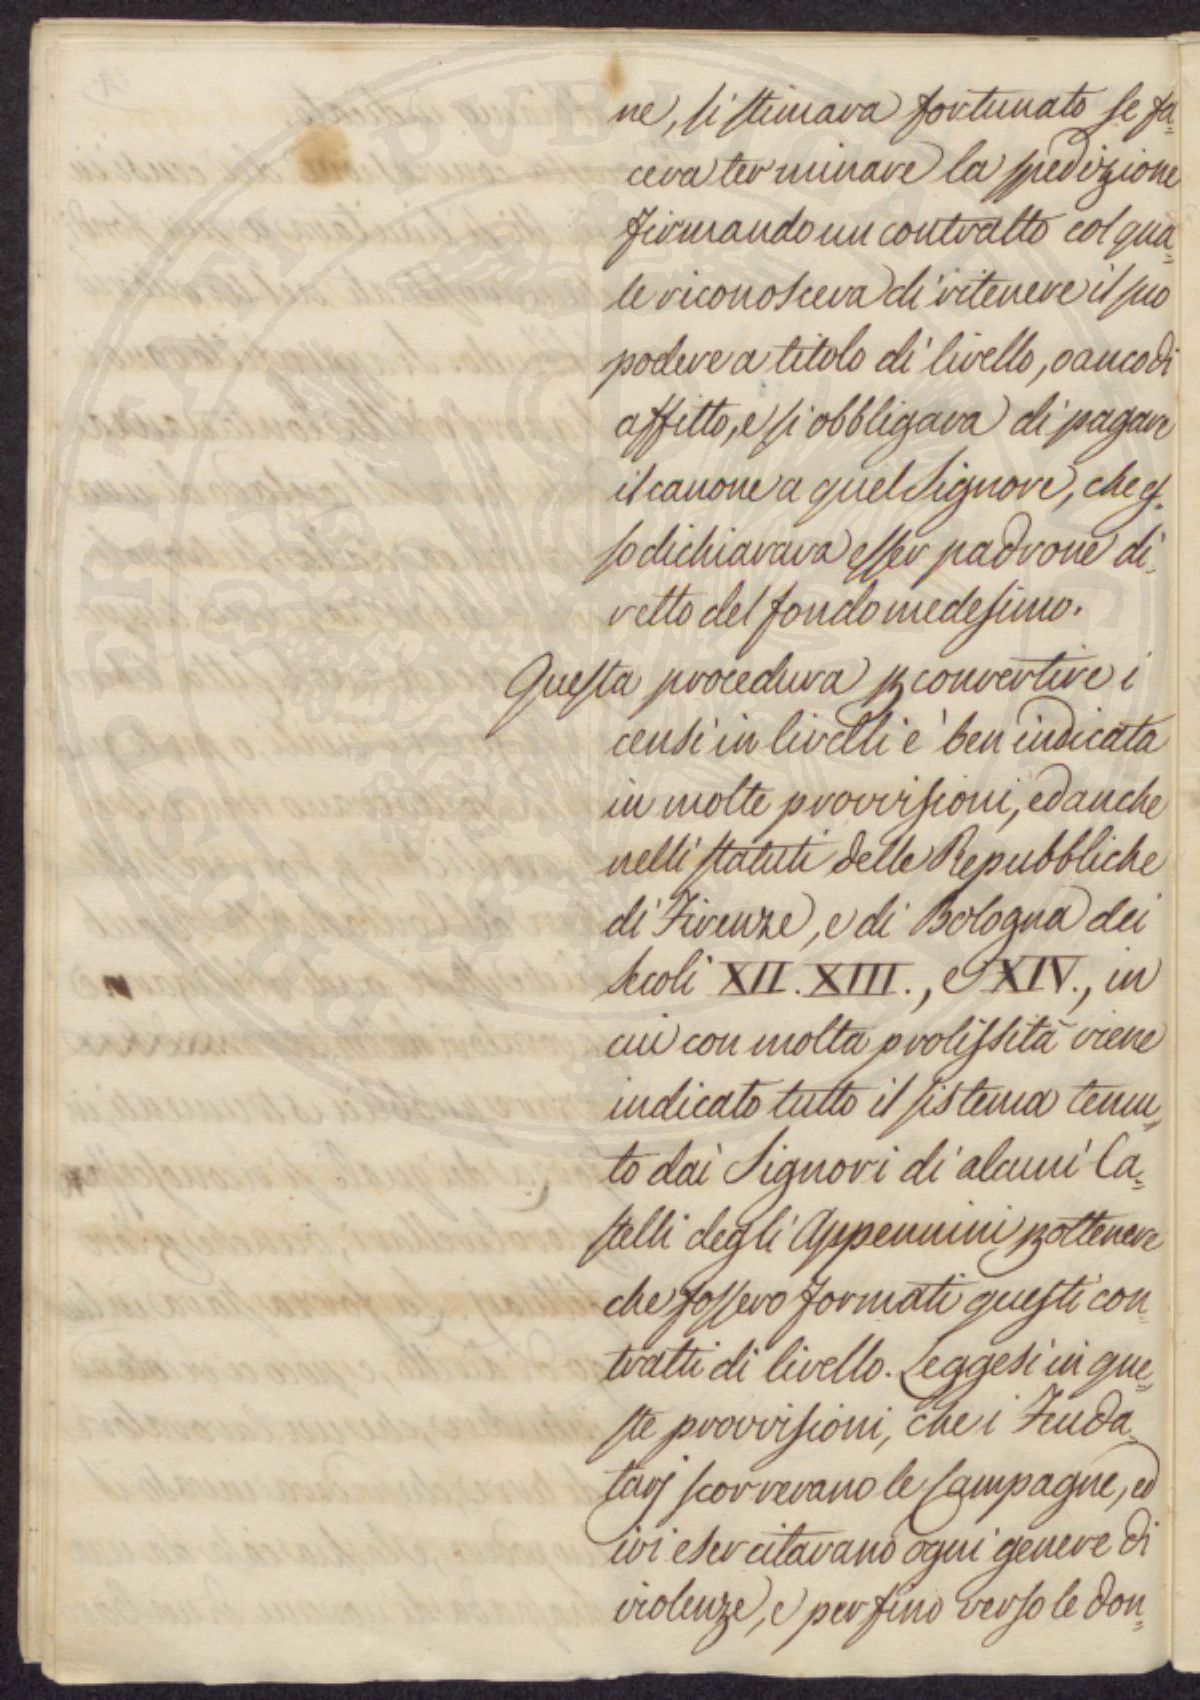 ne, si stimava fortunato se fa=
ceva terminare la spedizione
firmando un contratto col qua=
le riconosceva di ritenere il suo
podere a titolo di livello, o anco di
affitto, e si obbligava di pagare
il canone a quel Signore, che es=
so dichiarava esser padrone di=
retto del fondo medesimo.
Questa procedura p convertire i
censi in livelli è ben indicata
in molte provvisioni, ed anche
nelli statuti delle Repubbliche
di Firenze, e di Bologna dei
secoli XII. XIII., e XIV., in
cui con molta prolissità viene
indicato tutto il sistema tenu=
to dai Signori di alcuni Ca=
stelli degli Appennini p ottenere
che fossero formati questi con=
tratti di livello. Leggesi in que=
ste provvisioni, che i Feuda=
tarj scorrevano le Campagne, ed
ivi esercitavano ogni genere di
violenze, e perfino verso le don=